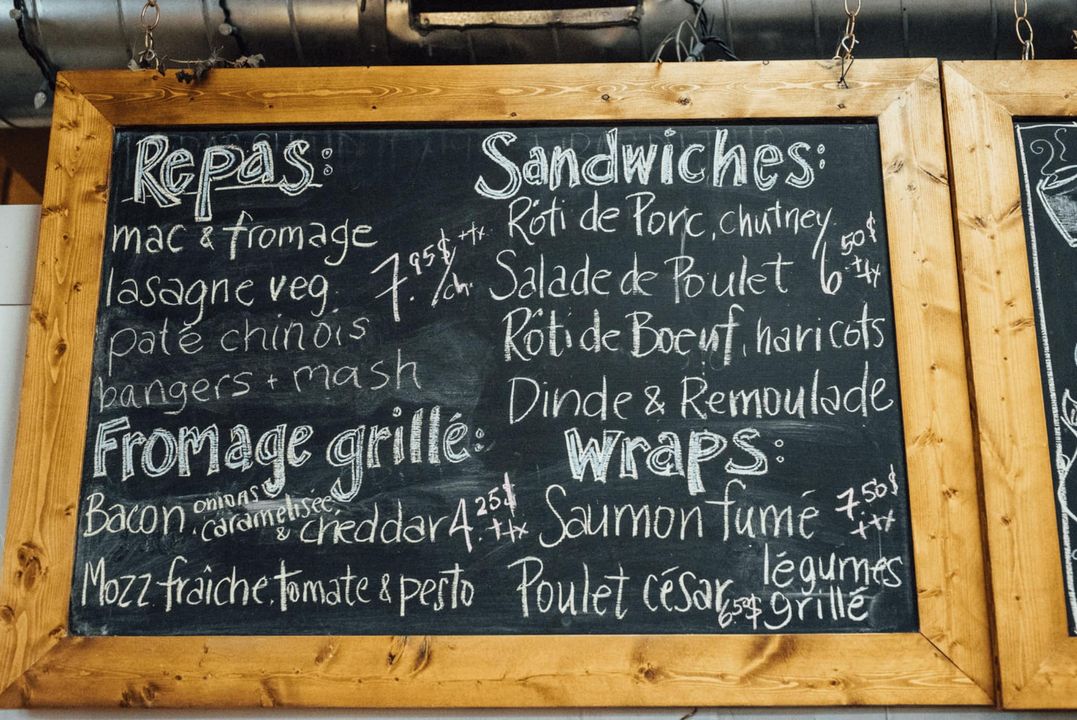 Repas:
mac & fromage
lasagne veg. 7.95$ +tx /ch.
paté chinois
bangers + mash
Fromage grillé:
Bacon, onions caramelisée, & cheddar 4.25$ +tx
Mozz fraîche, tomate & pesto
Sandwiches:
Rôti de Porc, chutney
Salade de Poulet 6.50$ +tx
Rôti de Boeuf, haricots
Dinde & Remoulade
Wraps:
Saumon fumé 7.50$ +tx
Poulet césar 6.50$
légumes
grillé